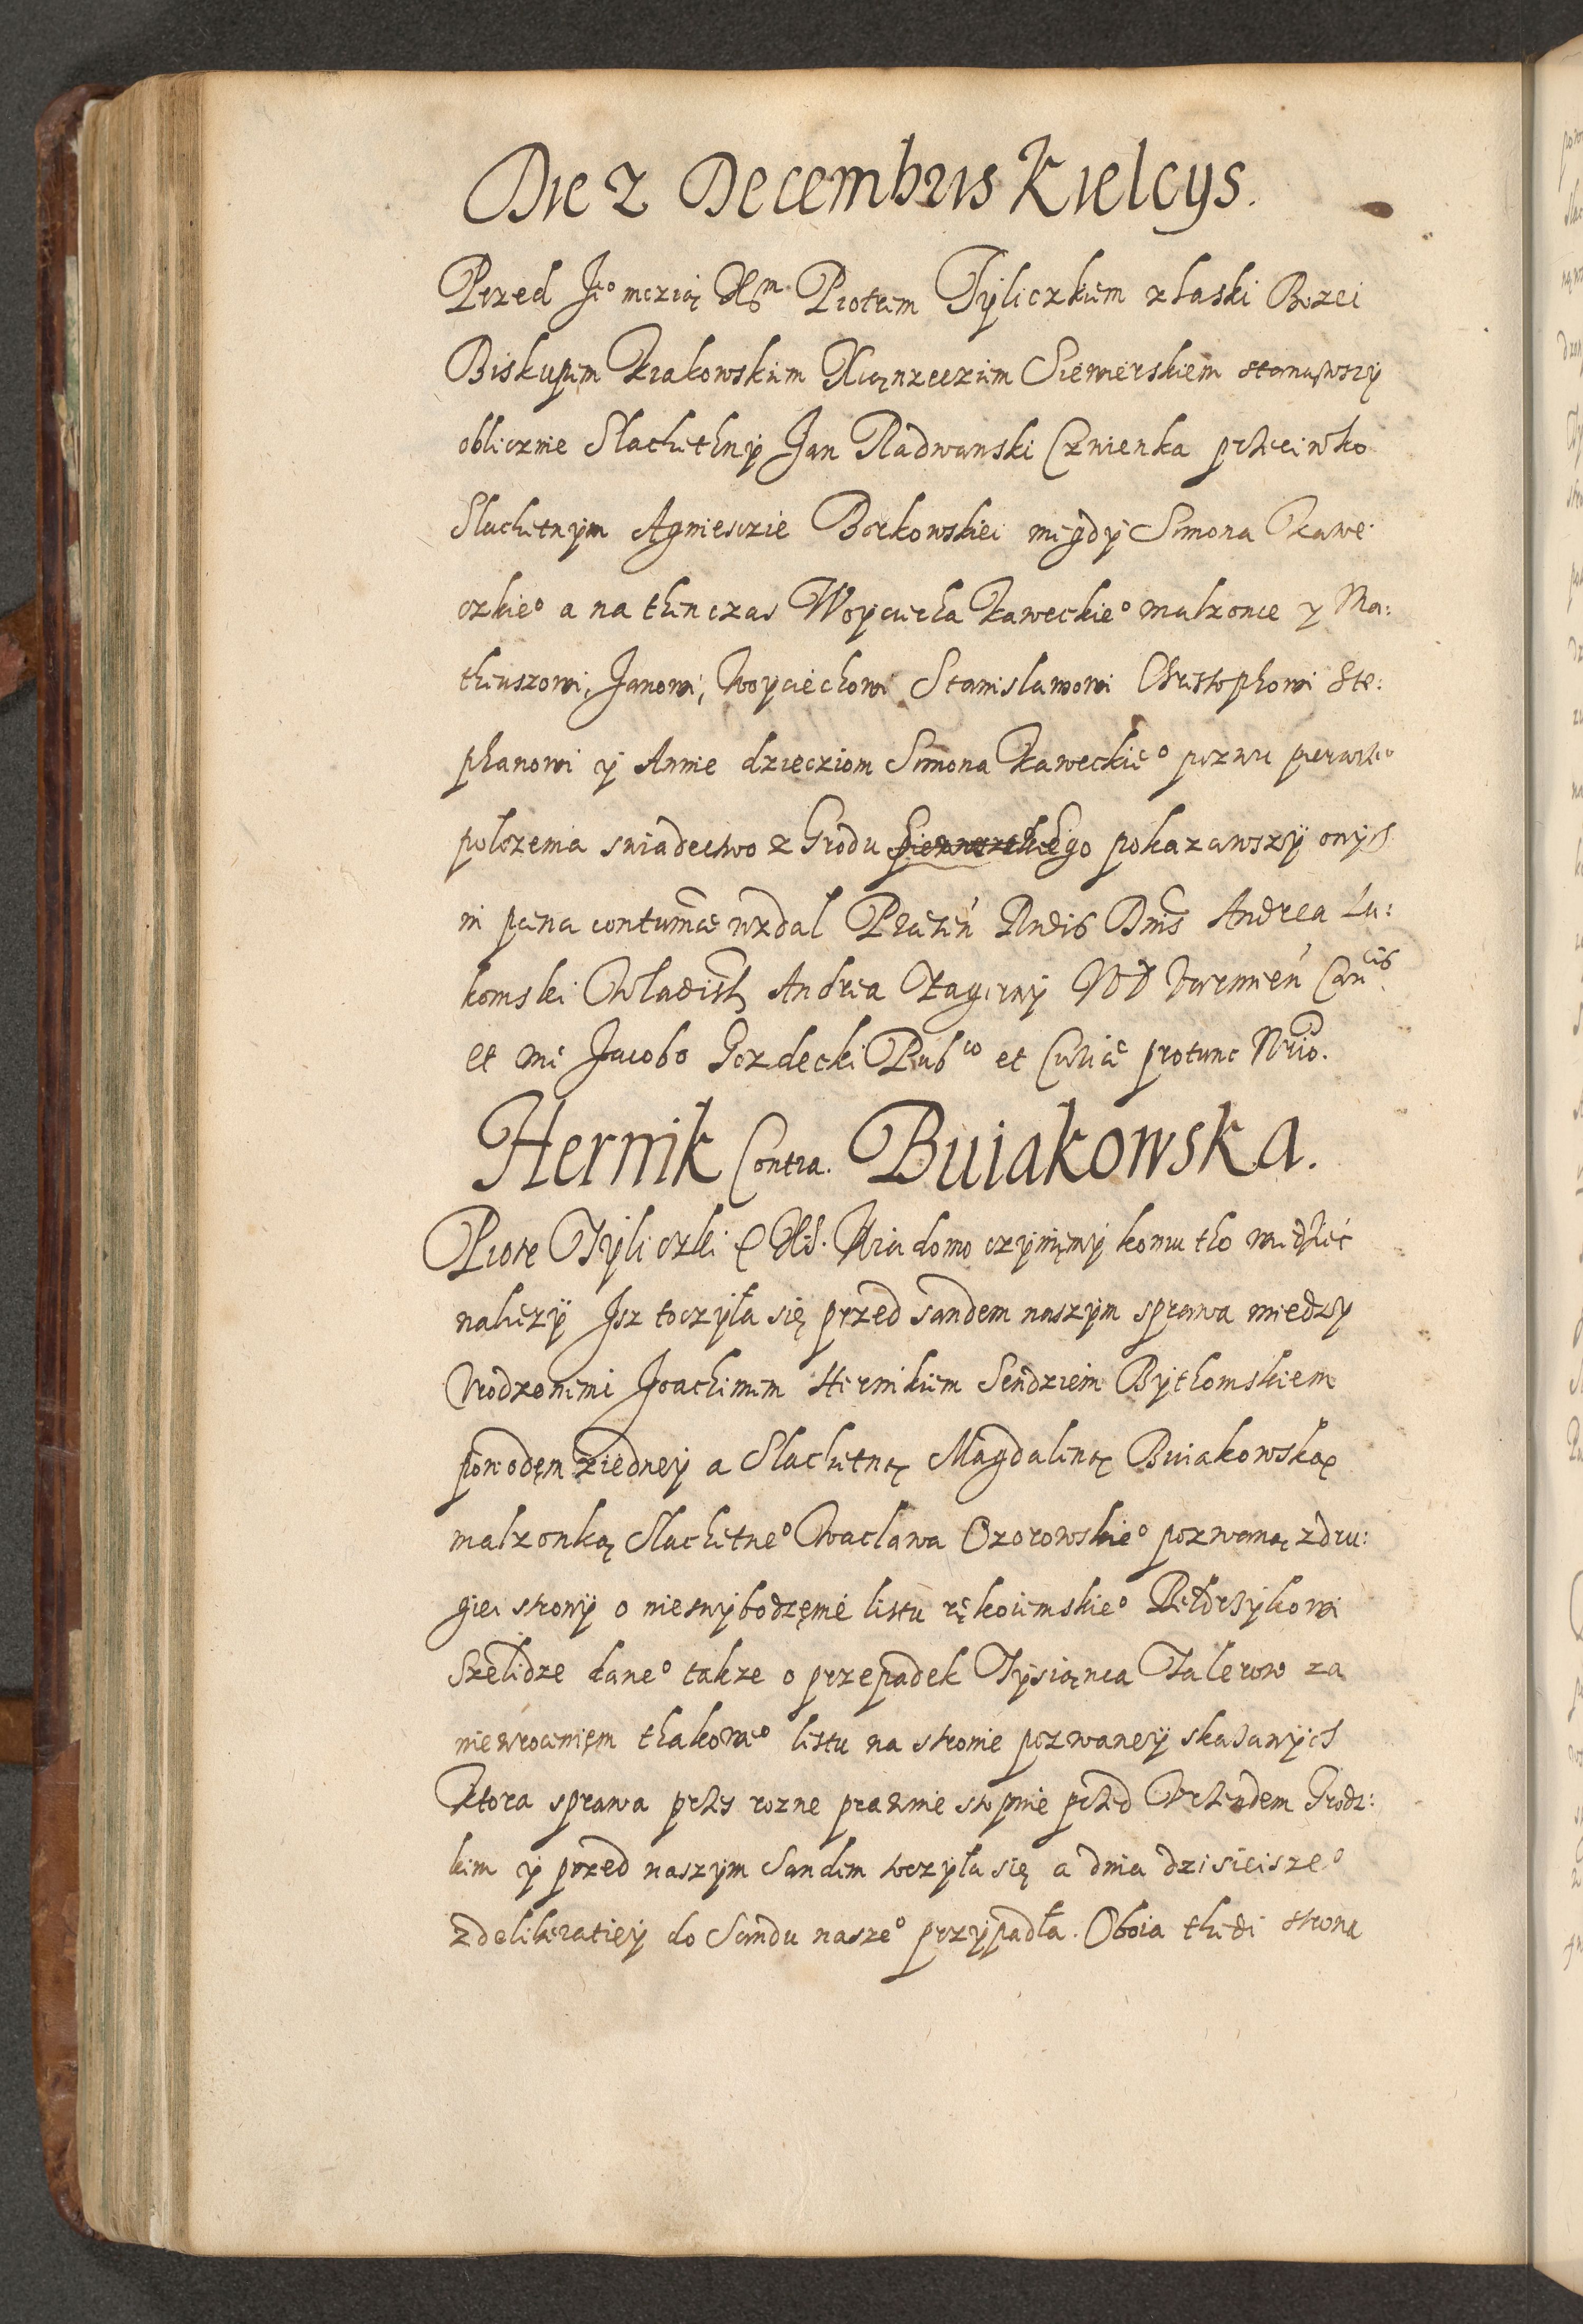 Die 2 Decembris Kielcys.
Przed Je° mczią Xm Piotrem Tyliczkiem z łaski Bozei
Biskupem Krakowskiem Xiąnzeczem Siewierskiem stanąwszy
oblicznie Slachethny Jan Radwanski Czwienka przeciwko
Slachetnym Agniesczie Borkowskiei niegdy Simona Kawe
czkie° a na thenczas Woyciecha Kaweckie° malzonce y Ma:
theuszowi, Janowi, Woyciechowi Stanislawowi Christophowi Ste:
phanowi y Annie dzieciom Simona Kaweckie° pozwu pierwsze°
polozenia swiadectwo z Grodu pokazawszy onych
in pœna contumaciæ wzdal Præsen Rndis Dnis Andrea Lu:
komski Wladisl Andrea Zagorny Varmien Can cis
et me Jacobo Gozdecki Pub co et Curiæ protunc Nrio.
Hernik Contra. Buiakowska.
Piotr Tyliczki Wiadomo czyniemy komu tho wiedzieć
nalezy Jsz toczyła się przed sandem naszym sprawa miedzy
Vrodzonemi Joachimem Hernikiem Sendziem Bythomskiem
powodem ziedney a Slachetną Magdaleną Buiakowską
malzonką Slachetne° Waclawa Ozorowskie° pozwaną zdru:
giei strony o niewybodzenie listu rękoiemskie°
Szelidze dane° takze o przepadek Tysiąnca Talerow za
niewroceniem thakowe° listu na stronie pozwaney skazanych
Ktora sprawa przes rozne prawnie stopnie przed Vrzendem Grodz:
kim y przed naszym Sandem toczyła się a dnia dzisieisze°
zdeliberatiey do Sandu nasze° przypadła. Oboia thedi strona